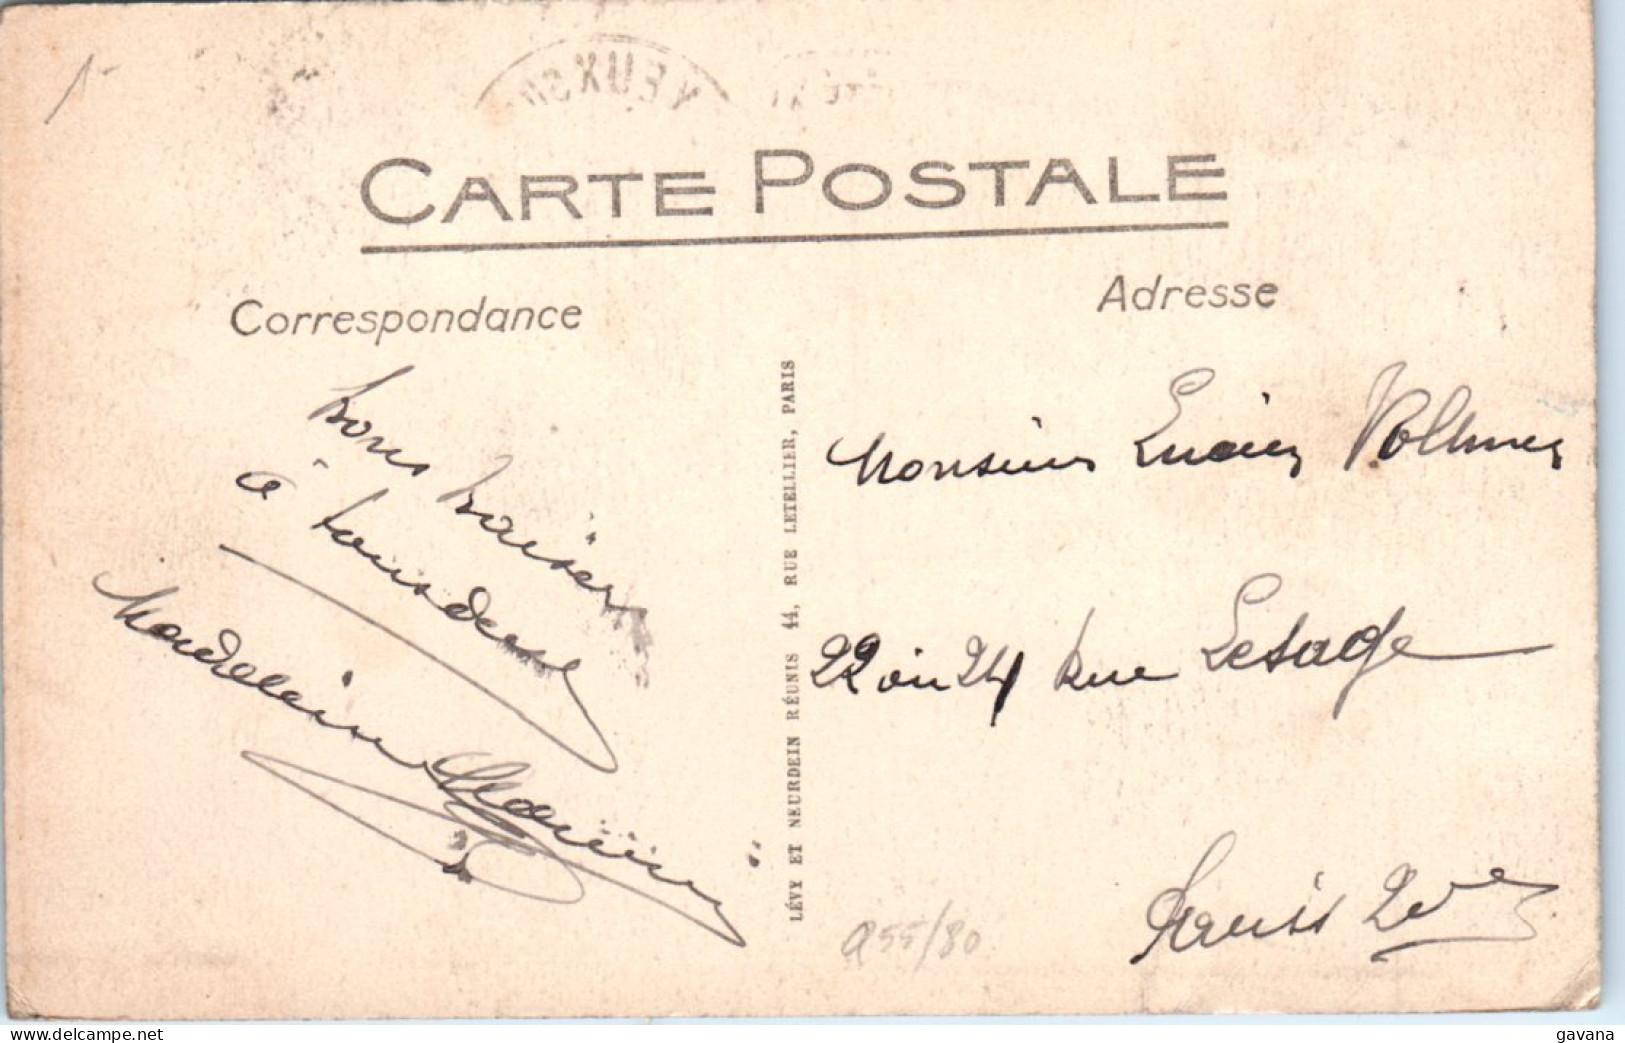 CARTE POSTALE
Correspondance
Adresse
bons baisers
à tous deux
Madeleine
LÉVY ET NEURDEIN RÉUNIS 44, RUE LETELLIER, PARIS
Monsieur Lucien Vollmer
22 ou 24 Rue Lesage
Paris 20e
a55/80
delcampe.net
gavana